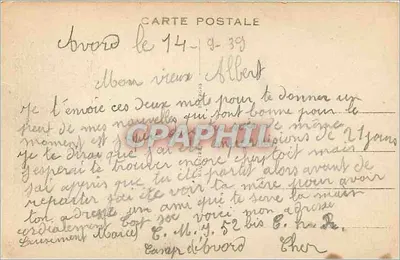 CARTE POSTALE
Avord le 14-9-39
Mon vieux Albert
Je t'envoie ces deux mots pour te donner un
peut de mes nouvelles qui sont bonne pour le
moment et j'espère de même
Je te dirai que j'ai permissions de 21 jours
j'esperai te trouver encore chez toit mais
j'ai appris que tu été partit alors avant de
repartir j'ai été voir ta mère pour avoir
ton adresse un ami qui te serre la main
cordialement voici mon adresse
Marcel C. M. J. 52 bis
Camp d'Avord Cher
CPAPHIL